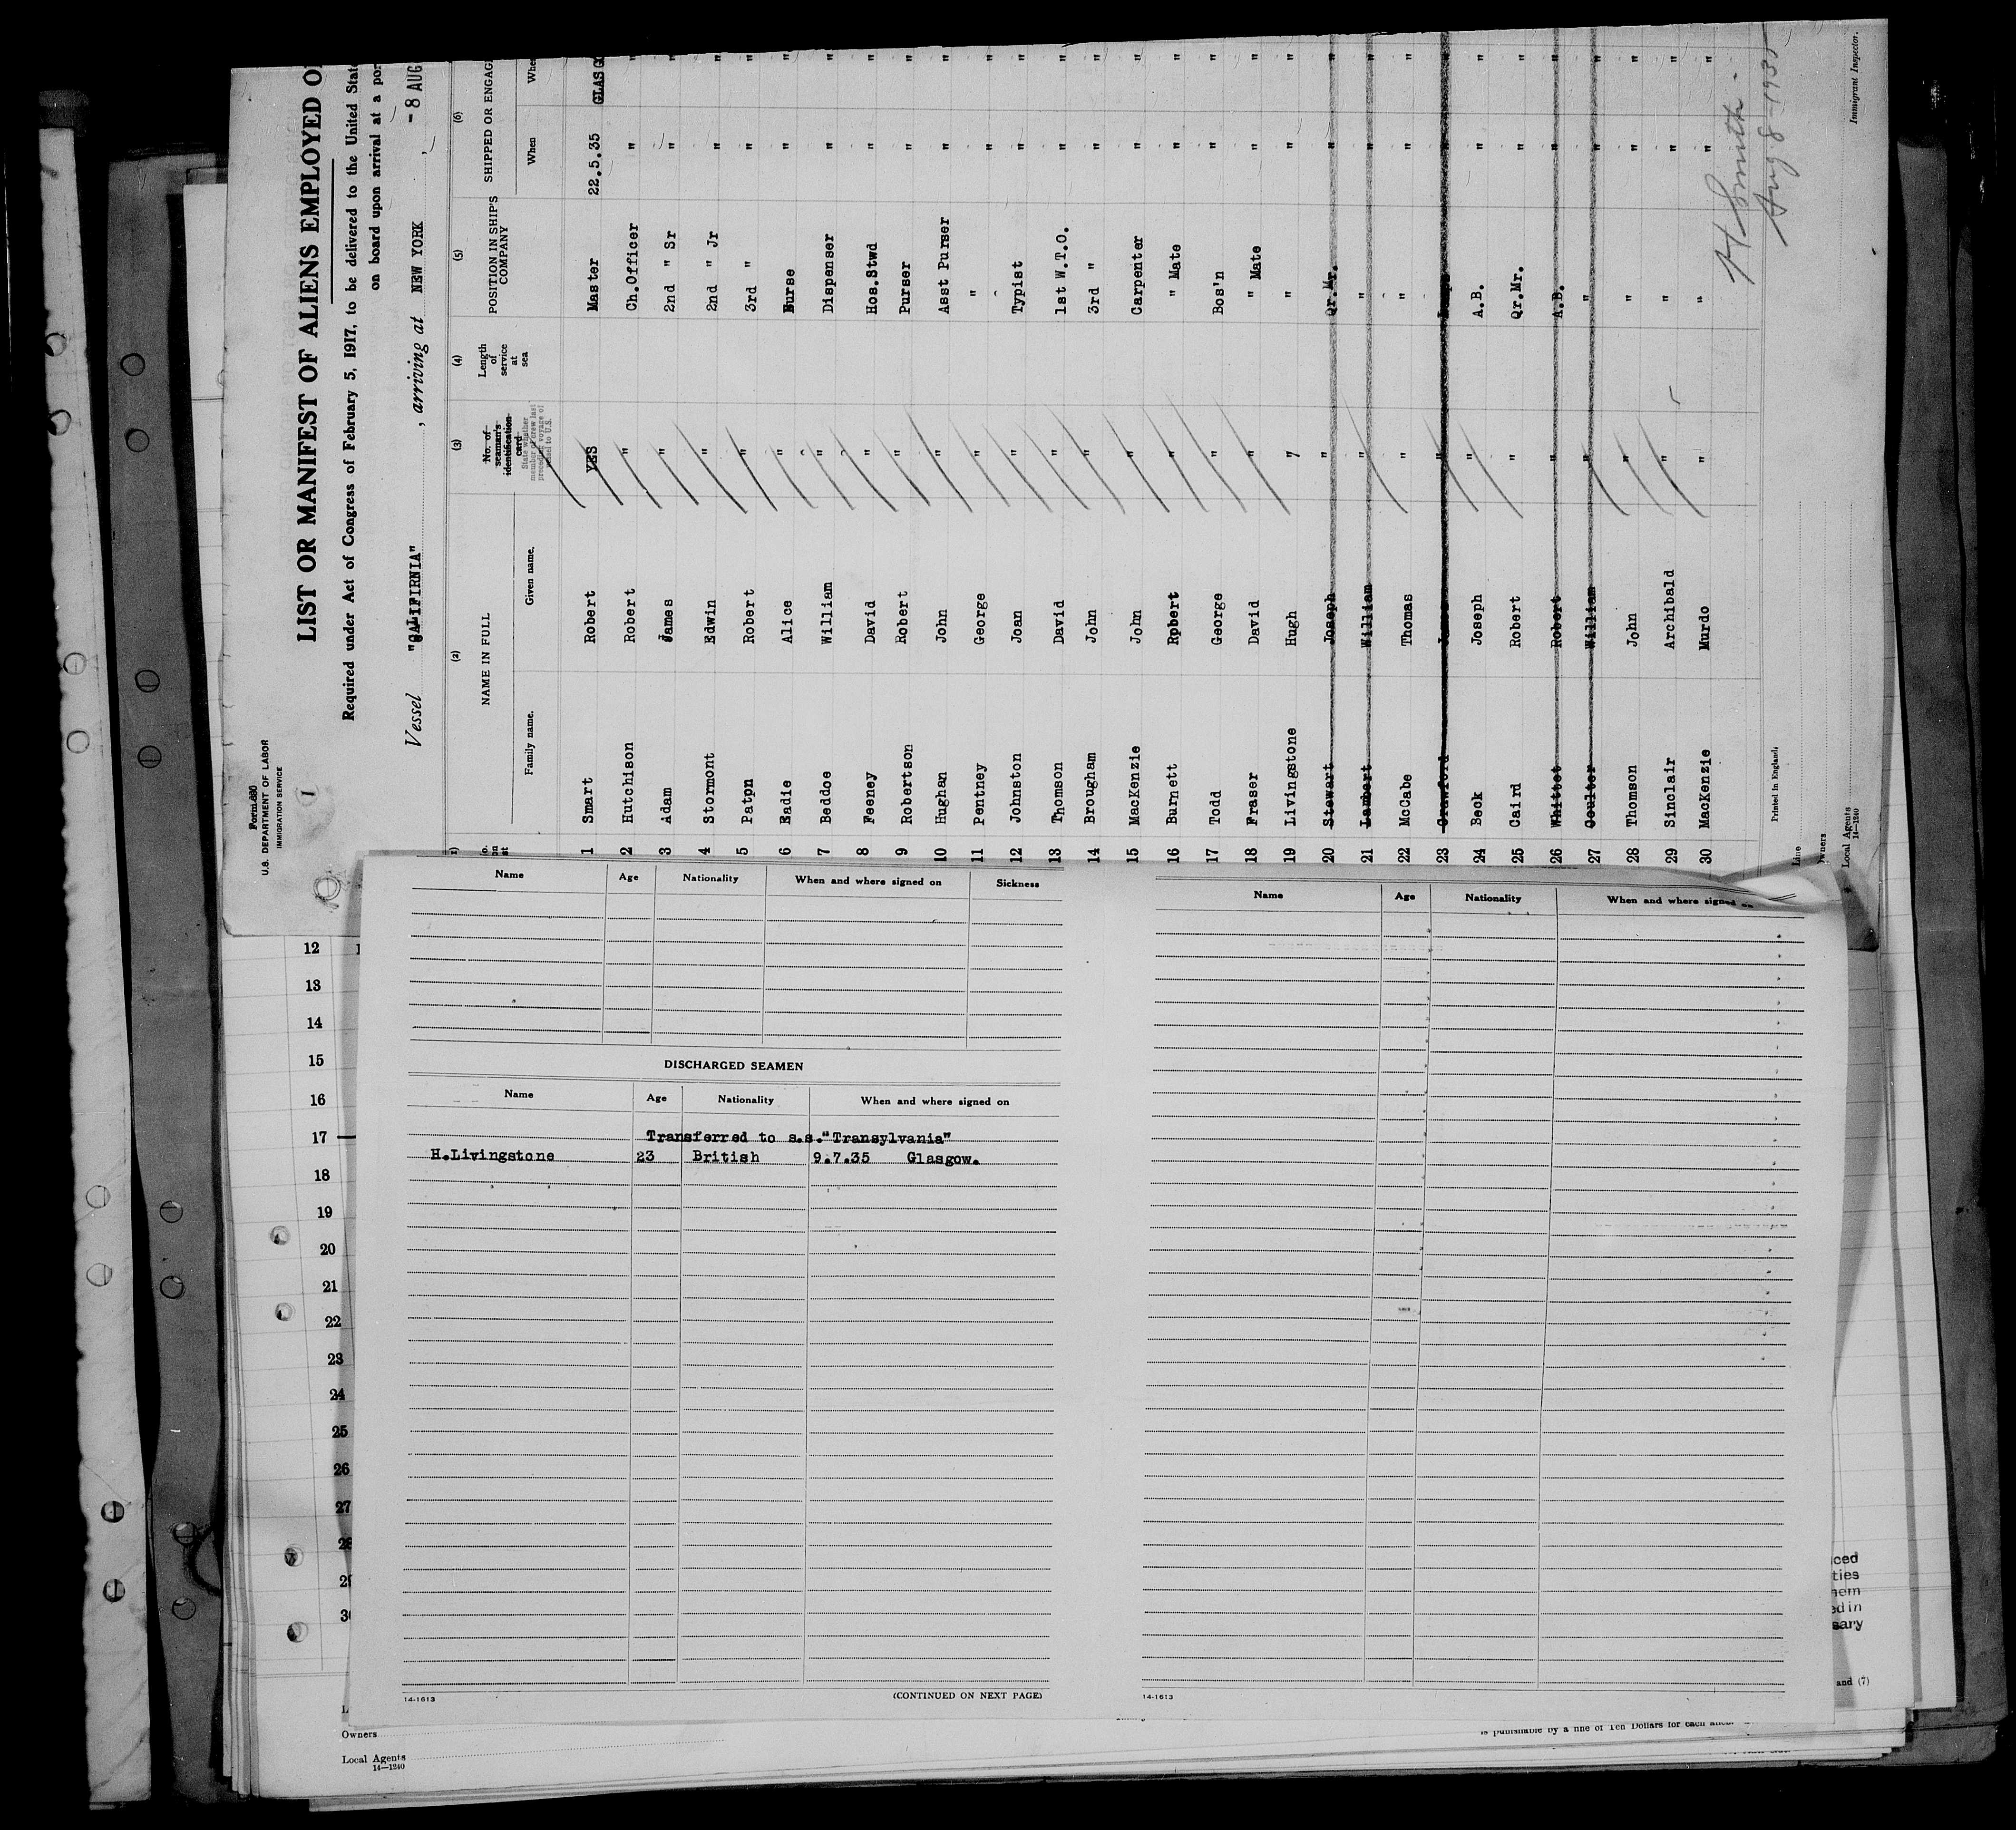 Form 680
U.S. DEPARTMENT OF LABOR
IMMIGRATION SERVICE
1
LIST OR MANIFEST OF ALIENS EMPLOYED O
Required under Act of Congress of February 5, 1917, to be delivered to the United State
on board upon arrival at a por
Vessel "CALIFIRNIA" , arriving at NEW YORK , - 8 AUG
(2) (3) (4) (5) (6)
NAME IN FULL
Family name. Given name.
No. of seaman's identification card
State whether member of crew last preceding voyage of vessel to U.S.
Length of service at sea
POSITION IN SHIP'S COMPANY
SHIPPED OR ENGAG
When Whe
1 Smart Robert YES Master 22.5.35 GLASGO
2 Hutchison Robert " Ch.Officer " "
3 Adam James " 2nd " Sr " "
4 Stormont Edwin " 2nd " Jr " "
5 Patpn Robert " 3rd " " "
6 Eadie Alice " Nurse " "
7 Beddoe William " Dispenser " "
8 Feeney David " Hos.Stwd " "
9 Robertson Robert " Purser " "
10 Hughan John " Asst Purser " "
11 Pentney George " " " "
12 Johnston Joan " Typist " "
13 Thomson David " 1st W.T.O. " "
14 Brougham John " 3rd " " "
15 MacKenzie John " Carpenter " "
16 Burnett Robert " " Mate " "
17 Todd George " Bos'n " "
18 Fraser David " " Mate " "
19 Livingstone Hugh 7 " " "
20 Stewart Joseph " Qr.Mr. " "
21 Lambert William " " " "
22 McCabe Thomas " " " "
23 Crawford James " Lamps " "
24 Beck Joseph " A.B. " "
25 Caird Robert " Qr.Mr. " "
26 Whittet Robert " A.B. " "
27 Coulter William " " " "
28 Thomson John " " " "
29 Sinclair Archibald " " " "
30 MacKenzie Murdo " " " "
H Smith
Aug 8 - 1935
Immigrant Inspector.
Printed in England.
Line
Owners
Local Agents
14—1240
Name Age Nationality When and where signed on Sickness
DISCHARGED SEAMEN
Name Age Nationality When and where signed on
Transferred to s.s."Transylvania"
H.Livingstone 23 British 9.7.35 Glasgow.
14-1613
(CONTINUED ON NEXT PAGE)
Name Age Nationality When and where signed on
14-1613
12
13
14
15
16
17
18
19
20
21
22
23
24
25
26
27
28
29
30
Owners
Local Agents
14—1240
ced
ties
hem
ed in
sary
and (7)
is punishable by a fine of Ten Dollars for each alien